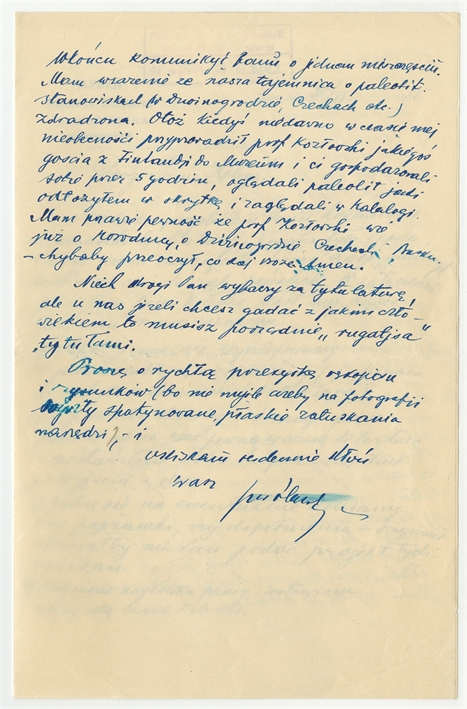 Wkońcu komunikuję Panu o jednem nieszczęściu.
Mam wrażenie że nasza tajemnica o paleolit.
stanowiskach (w Dwoinogrodzie, Czechach etc.)
zdradzona. Otoż kiedyś niedawno w czasie mej
nieobecności przyprowadził prof Kozłowski jakiegoś
gościa z Finlandji do Muzeum i ci gospodarowali
sobie przez 5 godzin, oglądali paleolit jaki
odłożyłem w skrytkę i zaglądali w katalogi.
Mam prawie pewność że prof. Kozłowski wie
już o Korodnicy, o Czechach,
– chybaby przeoczył, co daj Boże Amen.
Niech drogi Pan wybaczy za tytulaturę,
ale u nas jeżeli chcesz gadać z jakimś czło-
wiekiem to musisz poprzednio „rugatjsa"
„tytułami.
Proszę o rychłą przesyłkę rękopisu
i rysunków (bo nie mylić ażeby na fotografji
spatynowane, płaskie załuskania
narzędzi), – i
uściskam serdecznie dłoń
Wasz